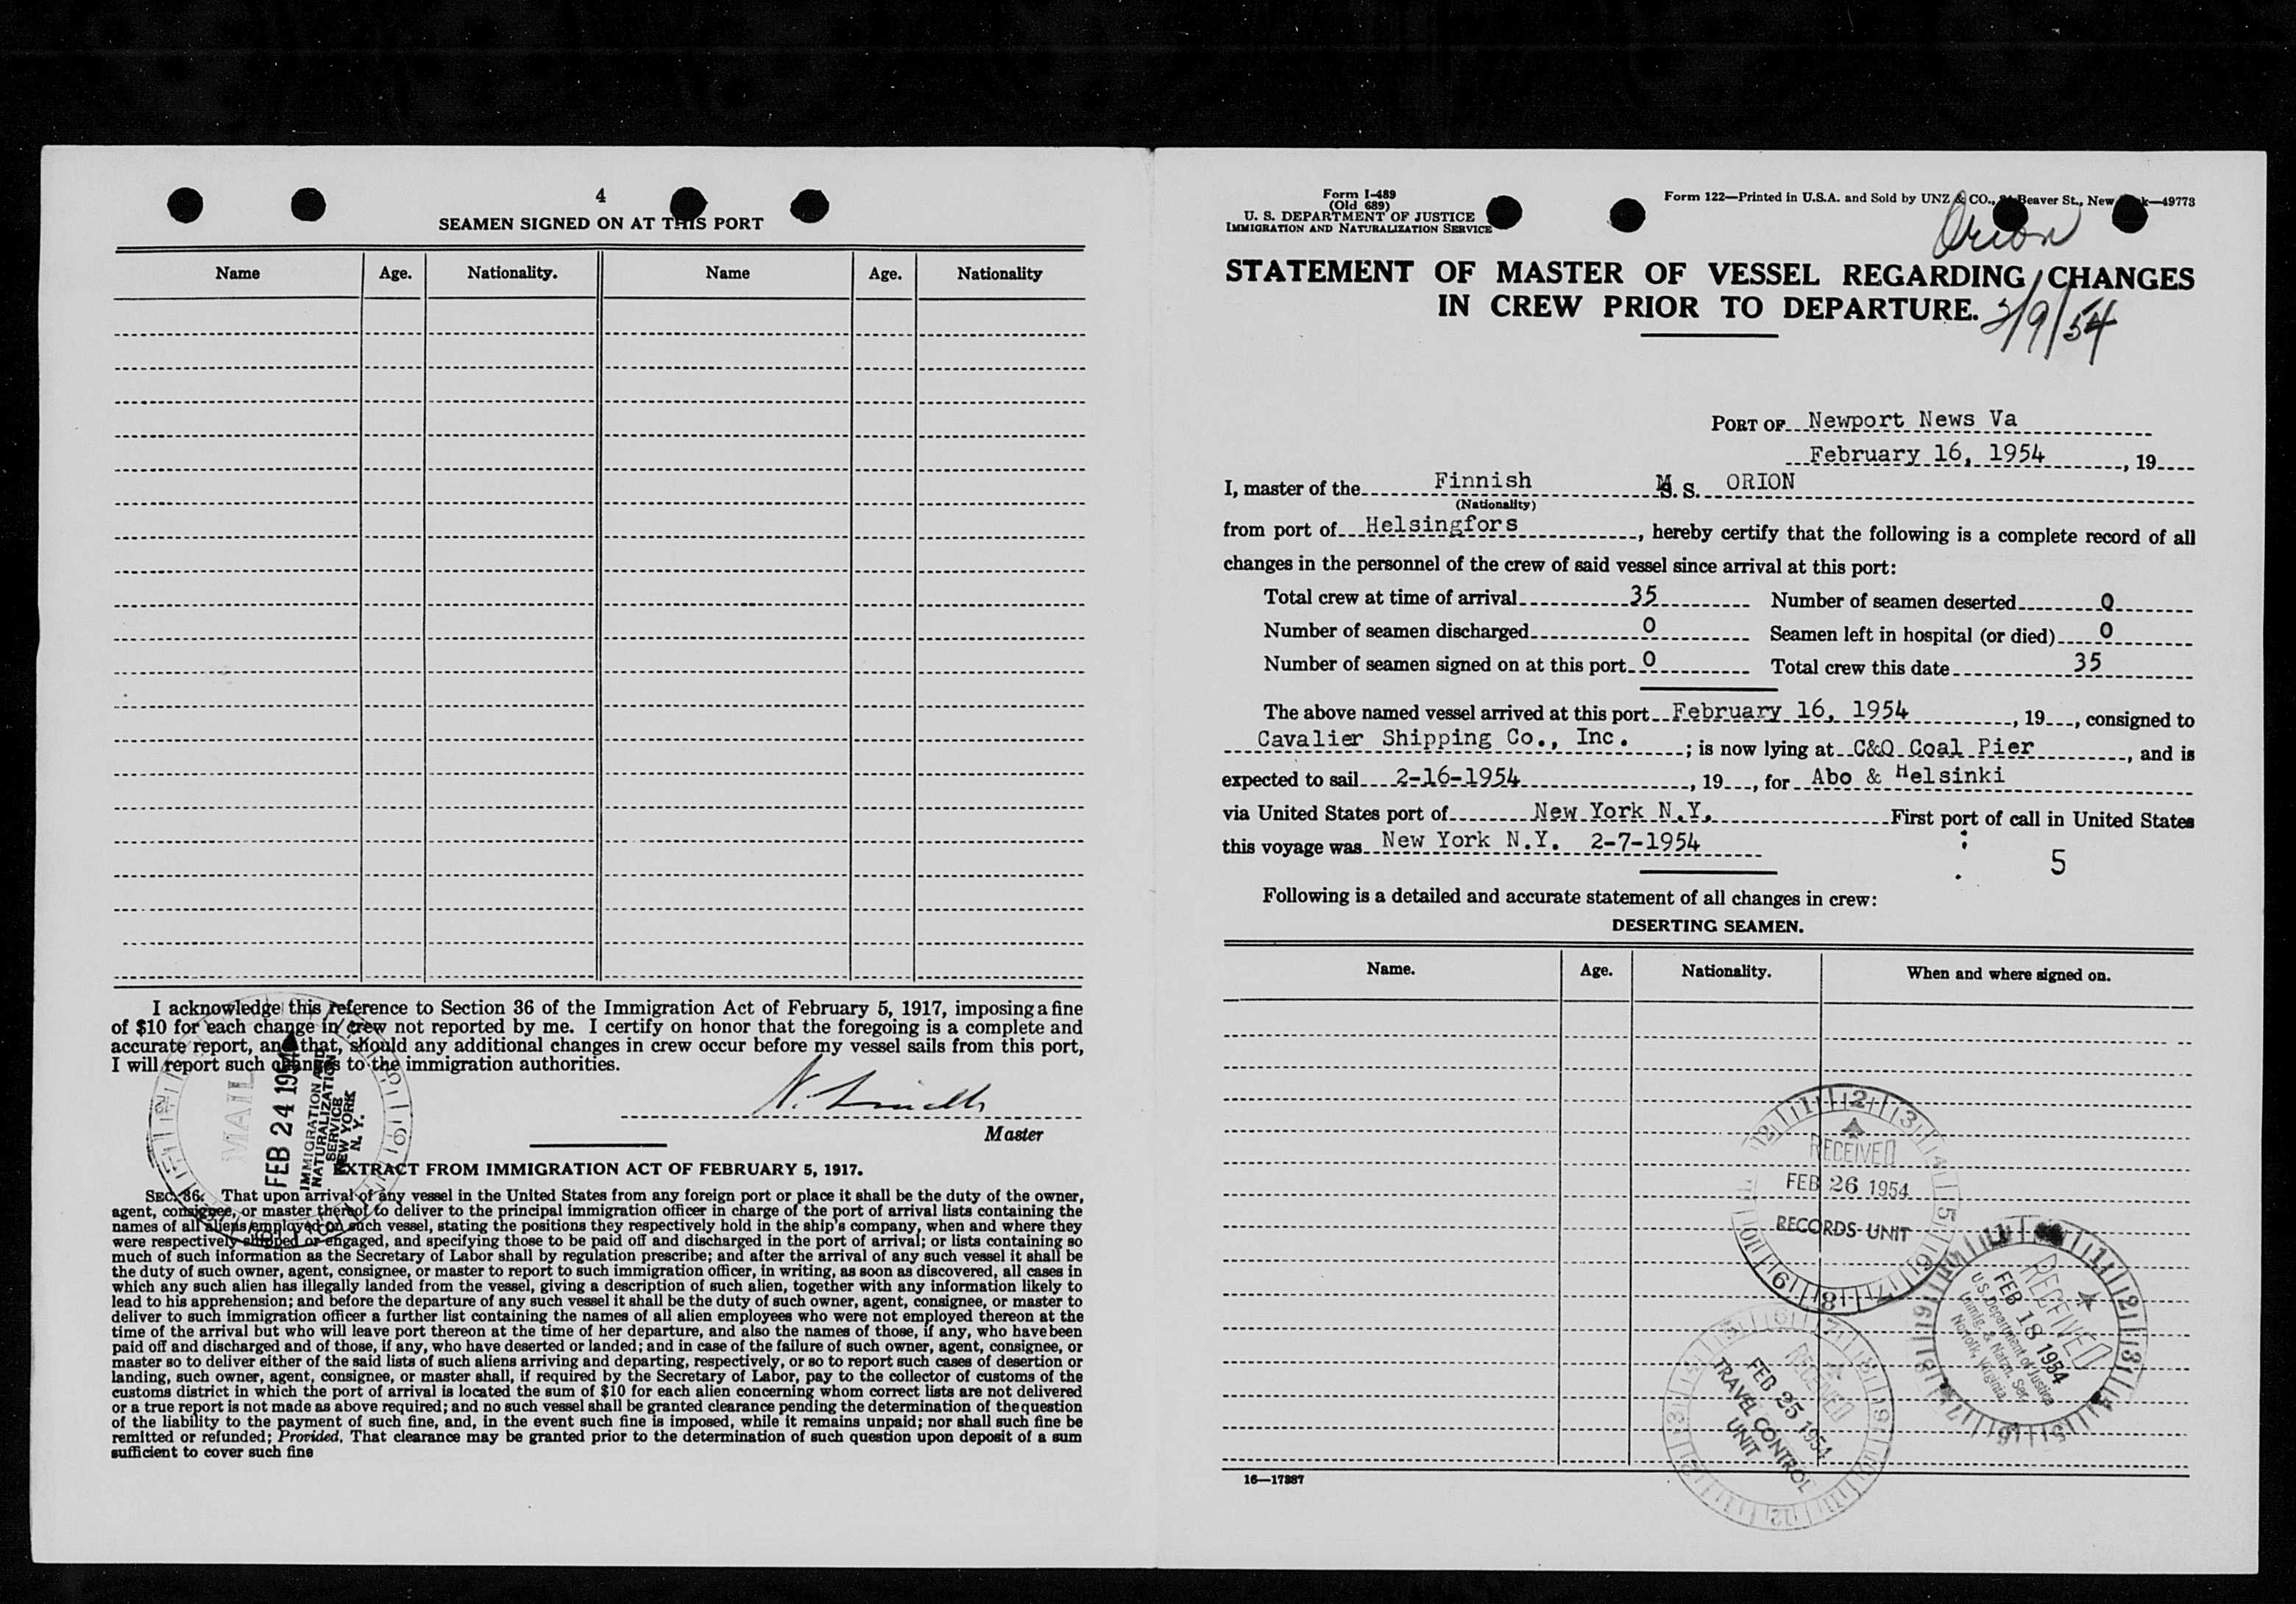 4
SEAMEN SIGNED ON AT THIS PORT
Name Age. Nationality. Name Age. Nationality
I acknowledge this reference to Section 36 of the Immigration Act of February 5, 1917, imposing a fine
of $10 for each change in crew not reported by me. I certify on honor that the foregoing is a complete and
accurate report, and that, should any additional changes in crew occur before my vessel sails from this port,
I will report such changes to the immigration authorities.
Master
MAIL
FEB 24 1954
IMMIGRATION AND
NATURALIZATION
SERVICE
NEW YORK
N. Y.
EXTRACT FROM IMMIGRATION ACT OF FEBRUARY 5, 1917.
SEC. 36. That upon arrival of any vessel in the United States from any foreign port or place it shall be the duty of the owner,
agent, consignee, or master thereof to deliver to the principal immigration officer in charge of the port of arrival lists containing the
names of all aliens employed on such vessel, stating the positions they respectively hold in the ship's company, when and where they
were respectively shipped or engaged, and specifying those to be paid off and discharged in the port of arrival; or lists containing so
much of such information as the Secretary of Labor shall by regulation prescribe; and after the arrival of any such vessel it shall be
the duty of such owner, agent, consignee, or master to report to such immigration officer, in writing, as soon as discovered, all cases in
which any such alien has illegally landed from the vessel, giving a description of such alien, together with any information likely to
lead to his apprehension; and before the departure of any such vessel it shall be the duty of such owner, agent, consignee, or master to
deliver to such immigration officer a further list containing the names of all alien employees who were not employed thereon at the
time of the arrival but who will leave port thereon at the time of her departure, and also the names of those, if any, who have been
paid off and discharged and of those, if any, who have deserted or landed; and in case of the failure of such owner, agent, consignee, or
master so to deliver either of the said lists of such aliens arriving and departing, respectively, or so to report such cases of desertion or
landing, such owner, agent, consignee, or master shall, if required by the Secretary of Labor, pay to the collector of customs of the
customs district in which the port of arrival is located the sum of $10 for each alien concerning whom correct lists are not delivered
or a true report is not made as above required; and no such vessel shall be granted clearance pending the determination of the question
of the liability to the payment of such fine, and, in the event such fine is imposed, while it remains unpaid; nor shall such fine be
remitted or refunded; Provided, That clearance may be granted prior to the determination of such question upon deposit of a sum
sufficient to cover such fine
Form I-489
(Old 689)
U. S. DEPARTMENT OF JUSTICE
IMMIGRATION AND NATURALIZATION SERVICE
Form 122—Printed in U.S.A. and Sold by UNZ & CO., Beaver St., New k—49773
Orion
STATEMENT OF MASTER OF VESSEL REGARDING CHANGES
IN CREW PRIOR TO DEPARTURE.
2/9/54
PORT OF Newport News Va
February 16, 1954, 19
I, master of the Finnish M. S. ORION
(Nationality)
from port of Helsingfors, hereby certify that the following is a complete record of all
changes in the personnel of the crew of said vessel since arrival at this port:
Total crew at time of arrival 35 Number of seamen deserted 0
Number of seamen discharged 0 Seamen left in hospital (or died) 0
Number of seamen signed on at this port 0 Total crew this date 35
The above named vessel arrived at this port February 16, 1954, 19, consigned to
Cavalier Shipping Co., Inc.; is now lying at C&O Coal Pier, and is
expected to sail 2-16-1954, 19, for Abo & Helsinki
via United States port of New York N.Y. First port of call in United States
this voyage was New York N.Y. 2-7-1954
5
Following is a detailed and accurate statement of all changes in crew:
DESERTING SEAMEN.
Name. Age. Nationality. When and where signed on.
RECEIVED
FEB 26 1954
RECORDS UNIT
RECEIVED
FEB 18 1954
U.S. Department of Justice
Immig. & Natzn. Ser.
Norfolk, Virginia
RECEIVED
FEB 25 1954
TRAVEL CONTROL
UNIT
16—17387